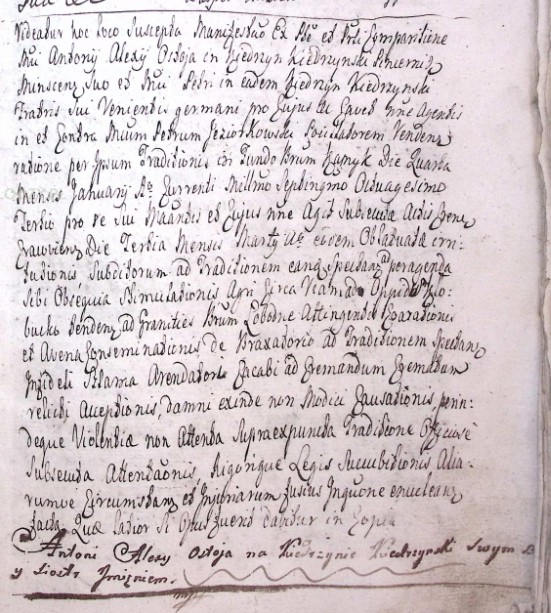 Videatur hoc loco suscepta Manifestatio Ex Ptē et Prsli Comparitione
Mūi Antonij Alexij Ostoja in Kiedrzyn Kiedrzynski Pincernic
Minscens Suo et Mūi Petri in eadem Kiedrzyn Kiedrzynski
Fratris sui Venientis germani pro Cujus tū Cavet nne Agentis
in et Contra Mūum Petrum Jeziorkowski Sollicitatorem Vendens
ratione per Ipsum Traditionis in Fundo Brum Kamyk Die Quarta
Mensis Januarij Aº Currenti Millmo Septingmo Octuagesimo
Tertio pro re Sui Mandantis et Cujus nne Agit Subsecuta Actis Cancs
Cracovien Die Tertia Mensis Martij Aº eodem Oblatuata
tudionis Subditorum ad Traditionem eand Spectan peragenda
Sibi Obsequia Stimulationis Agri Circa Viam ad Oppido Klo:
bucko tendens ad Granities Brum Lobodne Attingendo Exarationis
et Avena Conseminationis de Braxatorio ad Traditionem Spectan
Infideli Slama Arendatore Jacobi ad Cremandum Crematum
relicti Acceptionis, damni exinde non Modici Causationis, penn:
deque Violentia non Attenta Supraexpuncta Traditione Officiosè
Subsecuta Attentationis, Rigorique Legis Succubitionis Alia:
rumve Circumstan et Injuriarum fusius Inquone enuclean
facta Quæ latior Si Opus fuerit dabitur in Copia
Antoni Alexy Ostoja na Kiedrzynie Kiedrzynski swym
y Siostr Imieniem.